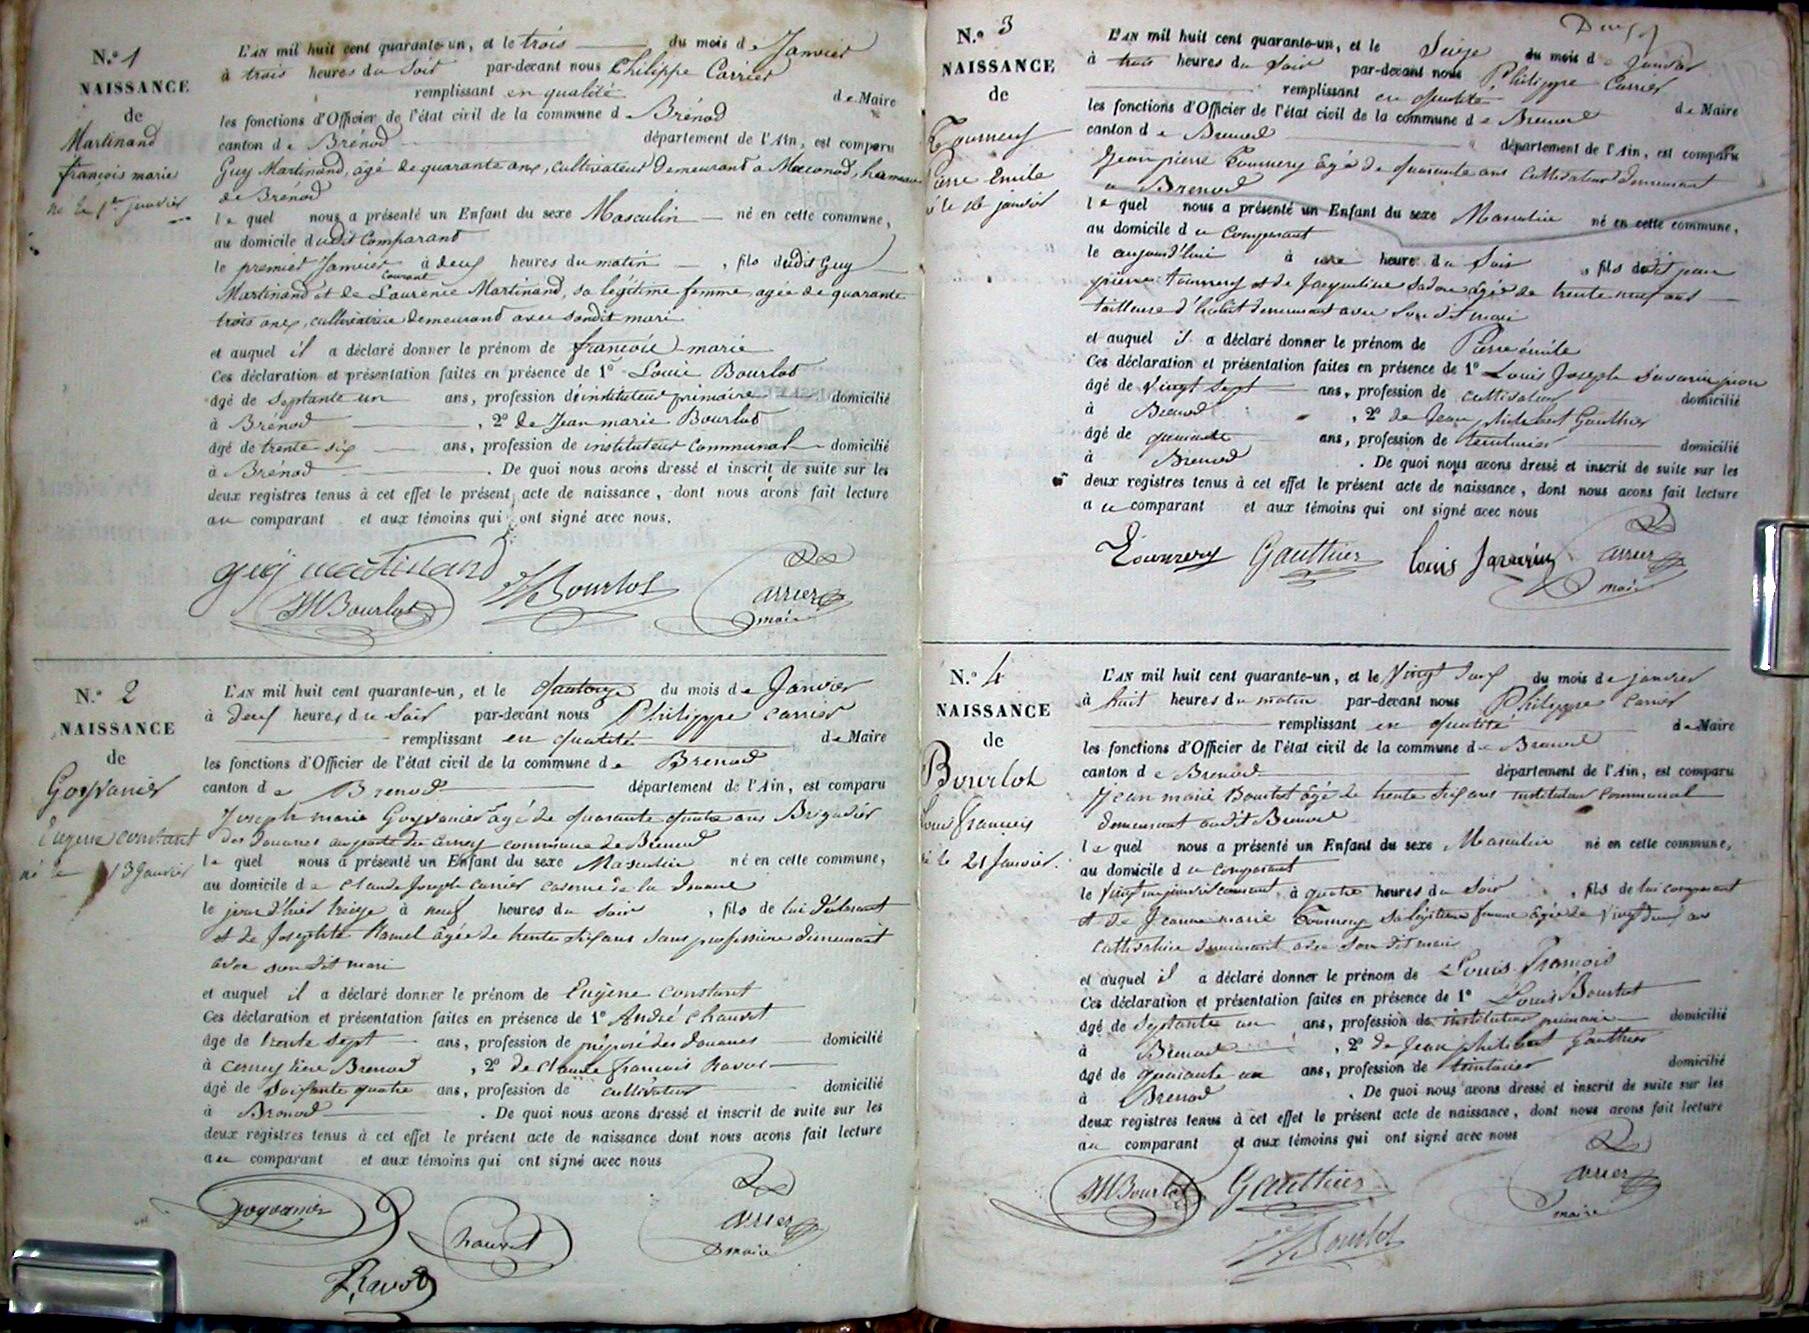 N.º 1
NAISSANCE
de
Martinand
françois marie
né le 1er janvier
L'AN mil huit cent quarante-un, et le trois du mois de Janvier
à trois heures du Soir par-devant nous Philippe Carrier
remplissant en qualité de Maire
les fonctions d'Officier de l'état civil de la commune de Brénod
canton de Brénod département de l'Ain, est comparu
Guy Martinand, âgé de quarante ans, cultivateur demeurant a Macconod, hameau
de Brénod
lequel nous a présenté un Enfant du sexe Masculin né en cette commune,
au domicile dudit Comparant
le premier Janvier courant à deux heures du matin, fils dudit Guy
Martinand et de Laurence Martinand, sa légitime femme, agée de quarante
trois ans, cultivatrice demeurant avec sondit mari
et auquel il a déclaré donner le prénom de françois marie
Ces déclaration et présentation faites en présence de 1º Louis Bourlot
âgé de septante un ans, profession d'instituteur primaire domicilié
à Brénod, 2º de Jean marie Bourlot
âgé de trente six ans, profession de instituteur Communal domicilié
à Brénod. De quoi nous avons dressé et inscrit de suite sur les
deux registres tenus à cet effet le présent acte de naissance, dont nous avons fait lecture
au comparant et aux témoins qui ont signé avec nous.
guy martinand
JMBourlot
Bourlot
Carrier
maire
N.º 2
NAISSANCE
de
Goyvanier
Eugène constant
né le 13 Janvier
L'AN mil huit cent quarante-un, et le quatorze du mois de Janvier
à deux heures du Soir par-devant nous Philippe Carrier
remplissant en qualité de Maire
les fonctions d'Officier de l'état civil de la commune de Brenod
canton de Brenod département de l'Ain, est comparu
Joseph marie Goyvanier âgé de quarante quatre ans Brigadier
des Douanes au poste du cerney commune de Brenod
lequel nous a présenté un Enfant du sexe Masculin né en cette commune,
au domicile de Claude Joseph Carrier caserne de la Douane
le jour d'hier treize à neuf heures du Soir, fils de lui déclarant
et de Josephte Hamel âgée de trente six ans sans profession demeurant
avec son dit mari
et auquel il a déclaré donner le prénom de Eugène constant
Ces déclaration et présentation faites en présence de 1º André Chauvet
âgé de trente sept ans, profession de préposé des douanes domicilié
à Brenod, 2º de Claude françois Ravot
âgé de Soixante quatre ans, profession de cultivateur domicilié
à Brenod. De quoi nous avons dressé et inscrit de suite sur les
deux registres tenus à cet effet le présent acte de naissance dont nous avons fait lecture
au comparant et aux témoins qui ont signé avec nous
goyvanier
Chauvet
Carrier
maire
Ravot
Deux
N.º 3
NAISSANCE
de
Tournery
Pierre Emile
né le 16 janvier
L'AN mil huit cent quarante-un, et le Seize du mois de Janvier
à trois heures du Soir par-devant nous Philippe Carrier
remplissant en qualité de Maire
les fonctions d'Officier de l'état civil de la commune de Brenod
canton de Brenod département de l'Ain, est comparu
Jean pierre Tournery âgé de quarante ans cultivateur demeurant
a Brenod
lequel nous a présenté un Enfant du sexe Masculin né en cette commune,
au domicile du Comparant
le aujourd'hui à une heure du Soir, fils dudit jean
pierre Tournery et de Jacqueline âgée de trente neuf ans
tailleuse d'habit demeurant avec son dit mari
et auquel il a déclaré donner le prénom de Pierre émile
Ces déclaration et présentation faites en présence de 1º Louis Joseph Savarin
âgé de vingt sept ans, profession de cultivateur domicilié
à Brenod, 2º de Jean philibert Gauthier
âgé de quarante ans, profession de teinturier domicilié
à Brenod. De quoi nous avons dressé et inscrit de suite sur les
deux registres tenus à cet effet le présent acte de naissance, dont nous avons fait lecture
au comparant et aux témoins qui ont signé avec nous
Tournery Gauthier Louis Savarin Carrier
maire
N.º 4
NAISSANCE
de
Bourlot
Louis françois
né le 21 Janvier.
L'AN mil huit cent quarante-un, et le Vingt deux du mois de janvier
à huit heures du matin par-devant nous Philippe Carrier
remplissant en qualité de Maire
les fonctions d'Officier de l'état civil de la commune de Brenod
canton de Brenod département de l'Ain, est comparu
Jean marie Bourlot âgé de trente six ans instituteur communal
demeurant audit Brenod
lequel nous a présenté un Enfant du sexe Masculin né en cette commune,
au domicile du comparant
le vingt un janvier courant à quatre heures du Soir, fils de lui comparant
et de Jeanne marie Tournery sa légitime femme âgée de vingt deux ans
cultivatrice demeurant avec son dit mari
et auquel il a déclaré donner le prénom de Louis François
Ces déclaration et présentation faites en présence de 1º Louis Bourlot
âgé de Septante un ans, profession de instituteur primaire domicilié
à Brenod, 2º de Jean philibert Gauthier
âgé de quarante un ans, profession de teinturier domicilié
à Brenod. De quoi nous avons dressé et inscrit de suite sur les
deux registres tenus à cet effet le présent acte de naissance, dont nous avons fait lecture
au comparant et aux témoins qui ont signé avec nous
JMBourlot Gauthier Carrier
maire
Bourlot